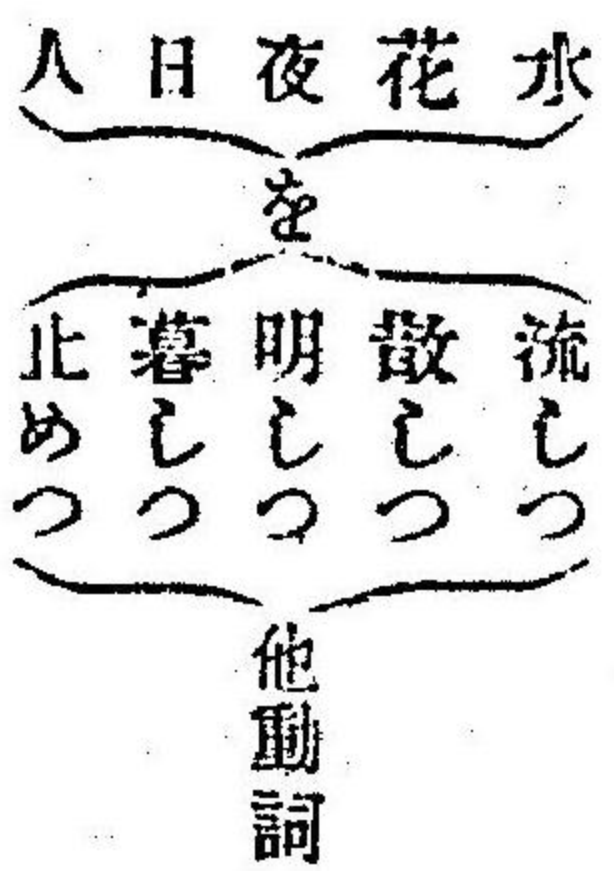 水
花
夜
日
人
を
流しつ
散しつ
明しつ
暮しつ
止めつ
他動詞